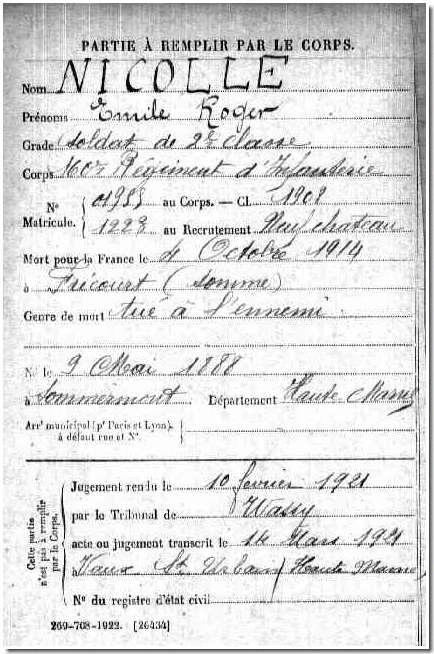 PARTIE À REMPLIR PAR LE CORPS.
Nom NICOLLE
Prénoms Emile Roger
Grade Soldat de 2e classe
Corps 160e Régiment d'Infanterie
N° Matricule. { 01983 au Corps. — Cl. 1908
1223 au Recrutement Neufchateau
Mort pour la France le 4 Octobre 1914
à Fricourt (Somme)
Genre de mort tué à l'ennemi
Né le 9 Mai 1888
à Sommermont Département Haute Marne
Arrt municipal (pr Paris et Lyon), à défaut rue et N°.
Cette partie n'est pas à remplir par le Corps.
Jugement rendu le 10 février 1921
par le Tribunal de Wassy
acte ou jugement transcrit le 14 Mars 1921
Vaux St Urbain Haute Marne
N° du registre d'état civil
269-708-1922. [26434]